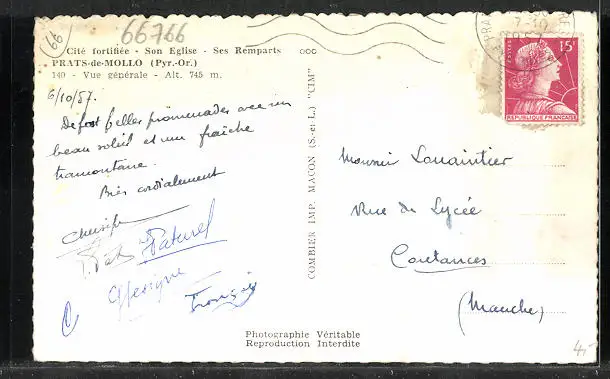 66
66766
Cité fortifiée - Son Eglise - Ses Remparts
PRATS-de-MOLLO (Pyr.-Or.)
140 - Vue générale - Alt. 745 m.
6/10/57.
belles promenades avec un
beau soleil et une fraîche
tramontane.
Bien cordialement
Paturel
François
COMBIER IMP. MACON (S.-et-L.) "CIM"
7-10
1957
POSTES
15F
REPUBLIQUE FRANÇAISE
Monsieur
Rue du Lycée
Coutances
(Manche)
Photographie Véritable
Reproduction Interdite